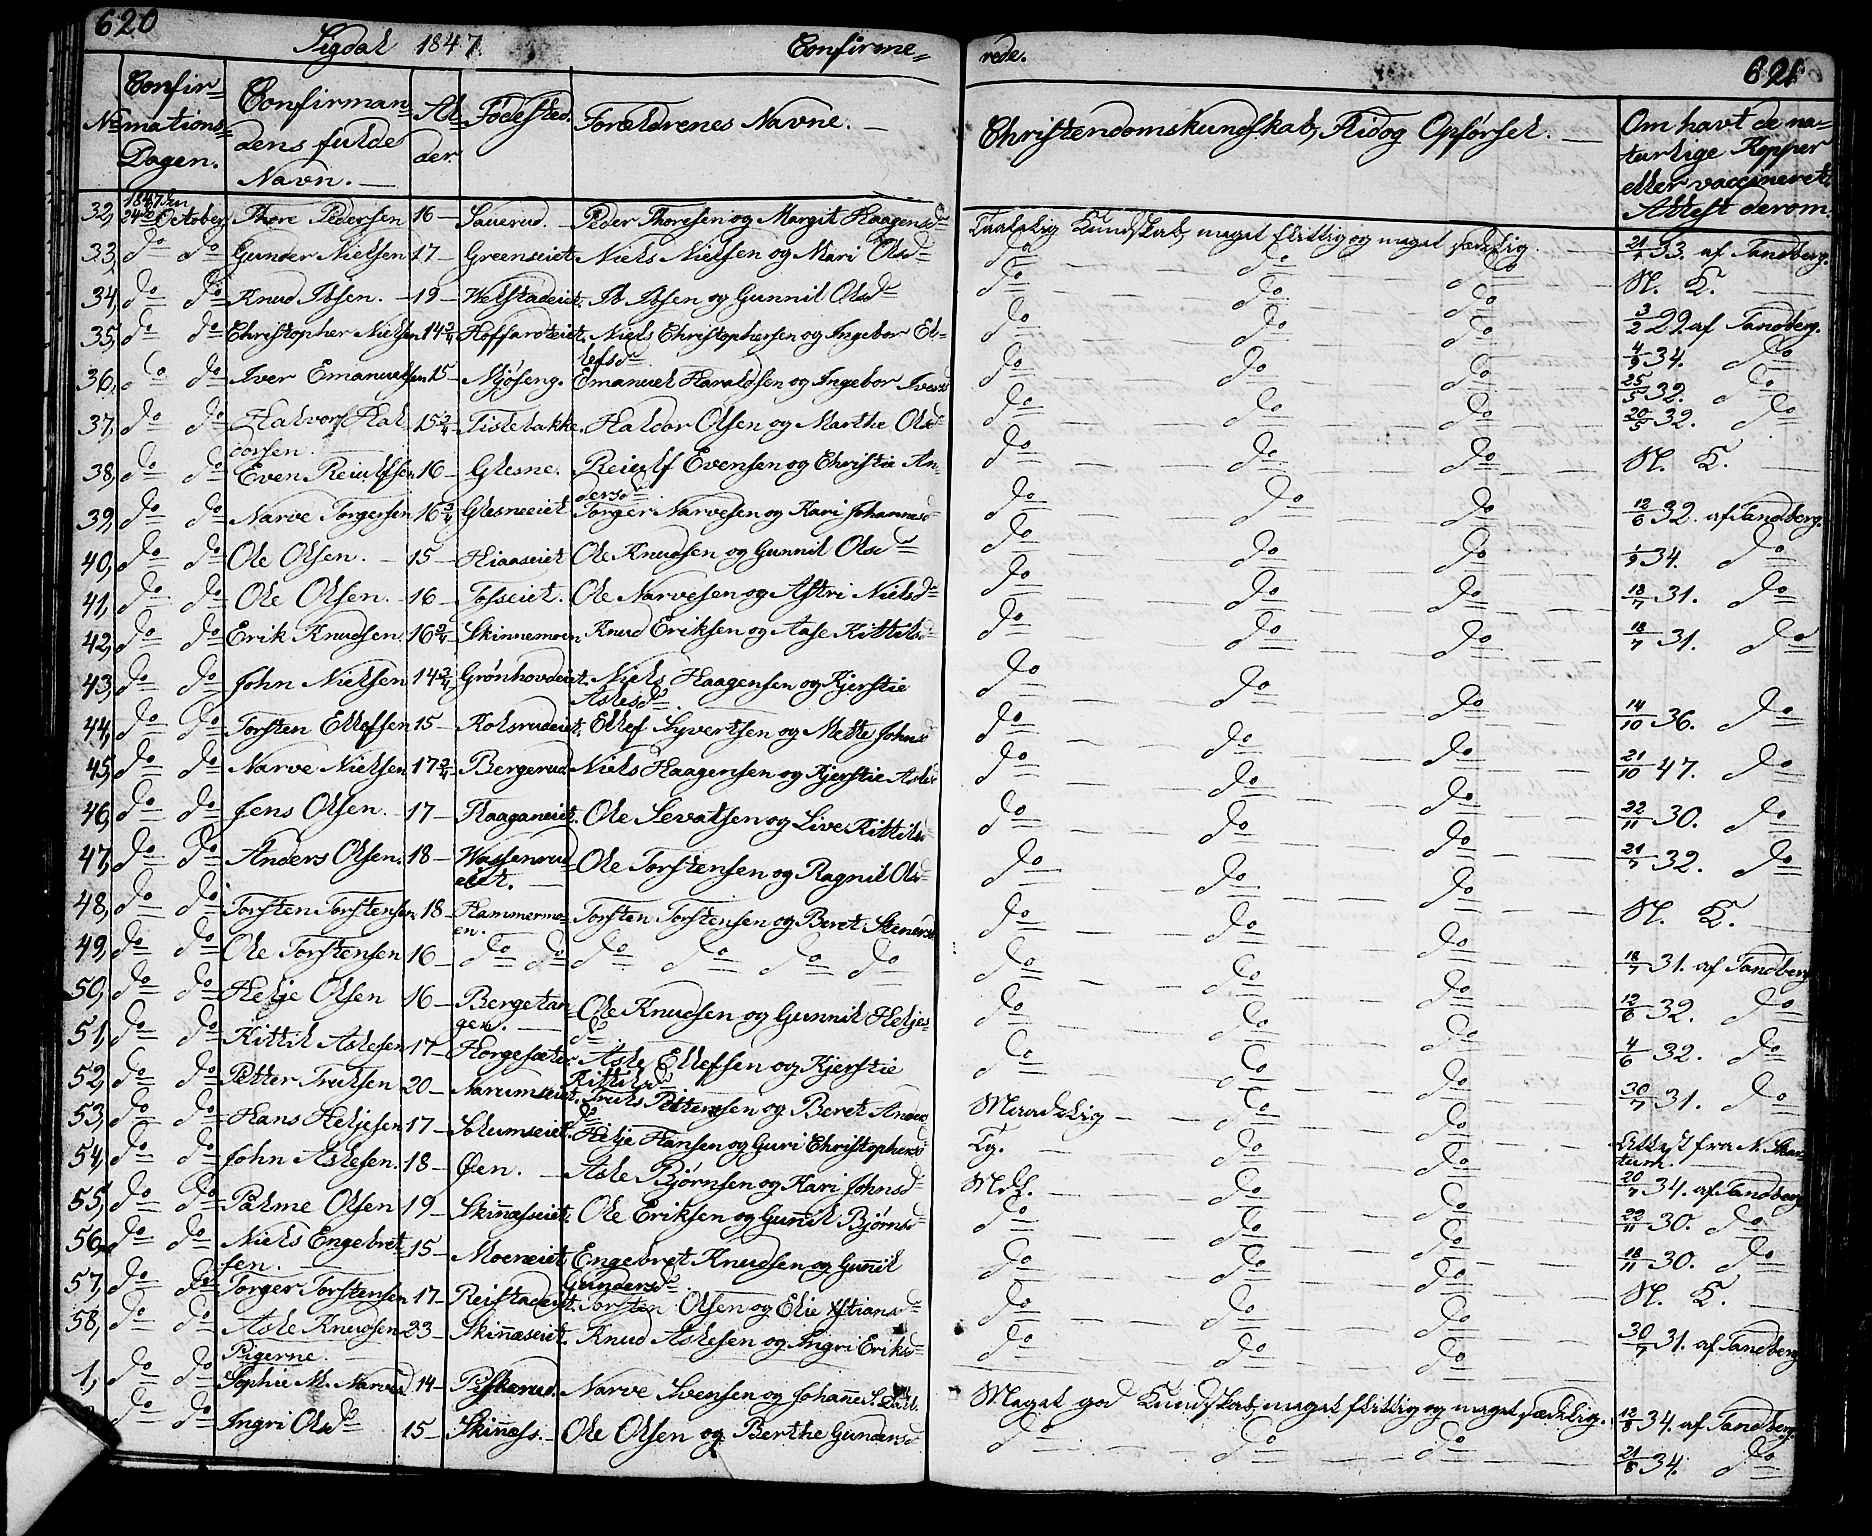 620
Sigdal 1847. Confirme=
rede.
621
No
Confir=
mations=
Dagen.
Confirman
dens fulde
Navn.
Al=
der.
Fødested.
Forældrenes Navne.
Christendomskundskab, Flid og Opførsel.
Om havt de na=
turlige Kopper
eller vaccineret,
Attest derom.
32, 1847 den 24de October Thore Pedersen 16 Sauerud. Peder Thoresen og Margit Haagensd Taalelig Kundskab, meget flittig og meget sædelig. 21/1 33. af Tandberg.
33, do do Gunder Nielsen 17 Greenseiet Niels Nielsen og Mari Olsd do do do N. K.
34, do do Knud Ibsen. 19 Welstadeiet. Ib Ibsen og Gunnil Olsd do do do 3/2 29. af Tandberg.
35, do do Christopher Nielsen 14 3/4 Hoffarteiet. Niels Christophersen og Ingebor El=
lefsd do do do 4/9 34. do
36, do do Iver Emanuelsen 15 Mjøseng. Emanuel Haraldsen og Ingebor Iversd do do do 25/5 32. do
37, do do Halvor Hal
dorsen. 15 3/4 Tislebakke. Haldor Olsen og Marthe Olsd do do do 20/5 32. do
38, do do Even Reiulfsen 16 Glesne. Reiulf Evensen og Christie An
dersd do do do N. K.
39, do do Narve Torgersen 16 3/4 Glesneeiet Torger Narvesen og Kari Johannesd do do do 12/6 32. af Tandberg.
40, do do Ole Olsen. 15 Hiaaseiet Ole Knudsen og Gunnil Olsd do do do 1/9 34. do
41, do do Ole Olsen. 16 Tofseiet. Ole Narvesen og Astri Nielsd do do do 18/7 31. do
42, do do Erik Knudsen. 16 3/4 Skinnemoen. Knud Eriksen og Aase Kittilsd do do do 18/7 31. do
43, do do John Nielsen 14 3/4 Grønhovdeiet. Niels Haagensen og Kjerstie
Aslesd do do do 14/10 36. do
44, do do Torsten Ellefsen 15 Kolsrudeiet. Ellef Syvertsen og Mette Johnsd do do do 21/10 47. do
45, do do Narve Nielsen 17 3/4 Bergerud Niels Haagensen og Kjerstie Aslesd do do do
46, do do Jens Olsen. 17 Haaganeiet. Ole Sevatsen og Live Kittilsd do do do 22/11 30. do
47, do do Anders Olsen. 18 Wassenrud
eiet. Ole Torstensen og Ragnil Olsd do do do 21/7 32. do
48, do do Torsten Torstensen 18 Hammermo=
en. Torsten Torstensen og Beret Stenersd do do do N. K.
49, do do Ole Torstensen 16 do do do do do do do do do 18/7 31. af Tandberg
50, do do Helje Olsen 16 Bergetan
gen. Ole Knudsen og Gunnil Heljes=
d do do do 12/8 32. do
51, do do Kittil Aslesen 17 Horgesæter. Asle Ellefsen og Kjerstie
Kittilsd do do do 4/6 32. do
52, do do Petter Trulsen 20 Narumseiet. Truls Pettersen og Beret Anders
d Maadelig do do 30/7 31. do
53, do do Hans Heljesen 17 Solumseiet. Helje Hansen og Guri Christophersd Tg. do do Attest fra N.
54, do do John Aslesen. 18 Øen. Asle Bjørnsen og Kari Johnsd Mdl. do do 20/7 34. af Tandberg
55, do do Palme Olsen 19 Skinæsseiet. Ole Eriksen og Gunnil Bjørnsd do do do 22/11 30. do
56, do do Niels Engebret
sen. 15 Moeneiet Engebret Knudsen og Gunnil
Gundersd do do do 18/11 30. do
57, do do Torger Torstensen 17 Reistadeiet. Torsten Olsen og Elie Xstiansd do do do N. K.
58, do do Asle Knudsen 23 Skinnæseiet. Knud Aslesen og Ingri Eriksd do do do 30/7 31. af Tandberg
Pigerne.
1, do do Sophie M. Narved 14 Piskerud. Narve Svensen og Johanne S. Meget god Kundskab, meget flittig og meget sædelig. 12/8 34. af Tandberg
do do Ingri Olsd 15 Skinnæss. Ole Olsen og Berthe Gundersd do do do 21/8 34. do